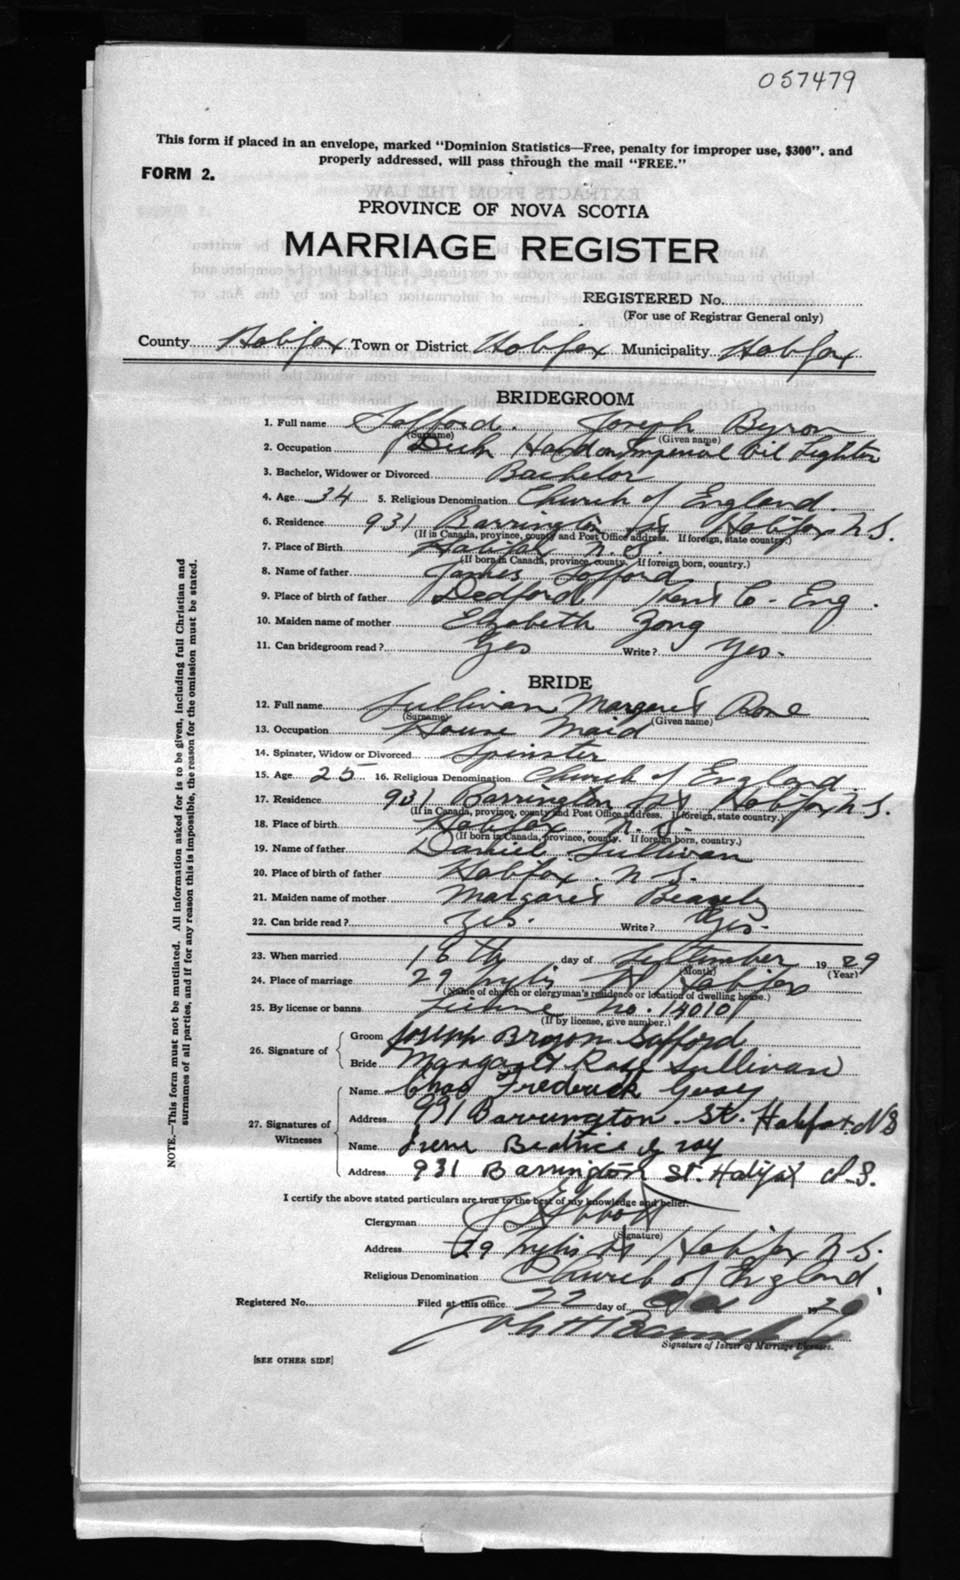 057479
This form if placed in an envelope, marked "Dominion Statistics—Free, penalty for improper use, $300", and
properly addressed, will pass through the mail "FREE."
FORM 2.
PROVINCE OF NOVA SCOTIA
MARRIAGE REGISTER
REGISTERED No.
(For use of Registrar General only)
County Halifax Town or District Halifax Municipality Halifax
BRIDEGROOM
1. Full name Safford. Joseph Byron
(Surname) (Given name)
2. Occupation Deck Hand on Imperial Oil Lighter
3. Bachelor, Widower or Divorced Bachelor
4. Age 34 5. Religious Denomination Church of England.
6. Residence 931 Barrington St Halifax N.S.
(If in Canada, province, county and Post Office address. If foreign, state country.)
7. Place of Birth Halifax N.S.
(If born in Canada, province, county. If foreign born, country.)
8. Name of father James Safford
9. Place of birth of father Eng.
10. Maiden name of mother Elizabeth
11. Can bridegroom read? Yes Write? Yes.
BRIDE
12. Full name Sullivan Margaret Rose
(Surname) (Given name)
13. Occupation House Maid
14. Spinster, Widow or Divorced Spinster
15. Age 25 16. Religious Denomination Church of England.
17. Residence 931 Barrington St Halifax N.S.
(If in Canada, province, county and Post Office address. If foreign, state country.)
18. Place of birth Halifax. N.S.
(If born in Canada, province, county. If foreign born, country.)
19. Name of father Daniel Sullivan
20. Place of birth of father Halifax. N.S.
21. Maiden name of mother Margaret
22. Can bride read? Yes. Write? Yes.
23. When married 18th day of September 1929
(Month) (Year)
24. Place of marriage 29 Inglis St Halifax
(Name of church or clergyman's residence or location of dwelling house.)
25. By license or banns License no. 140101
(If by license, give number.)
26. Signature of
Groom Joseph Bryon Safford
Bride Margaret Rose Sullivan
27. Signatures of Witnesses
Name Chas Frederick
Address 931 Barrington. St. Halifax. N S
Name Irene Beatrice
Address 931 Barrington St. Halifax N.S.
I certify the above stated particulars are true to the best of my knowledge and belief.
Clergyman
(Signature)
Address 29 Inglis St, Halifax N.S.
Religious Denomination Church of England.
Registered No. Filed at this office 22 day of
Signature of Issuer of Marriage Licenses.
[SEE OTHER SIDE]
NOTE.—This form must not be mutilated. All information asked for is to be given, including full Christian and
surnames of all parties, and if for any reason this is impossible, the reason for the omission must be stated.